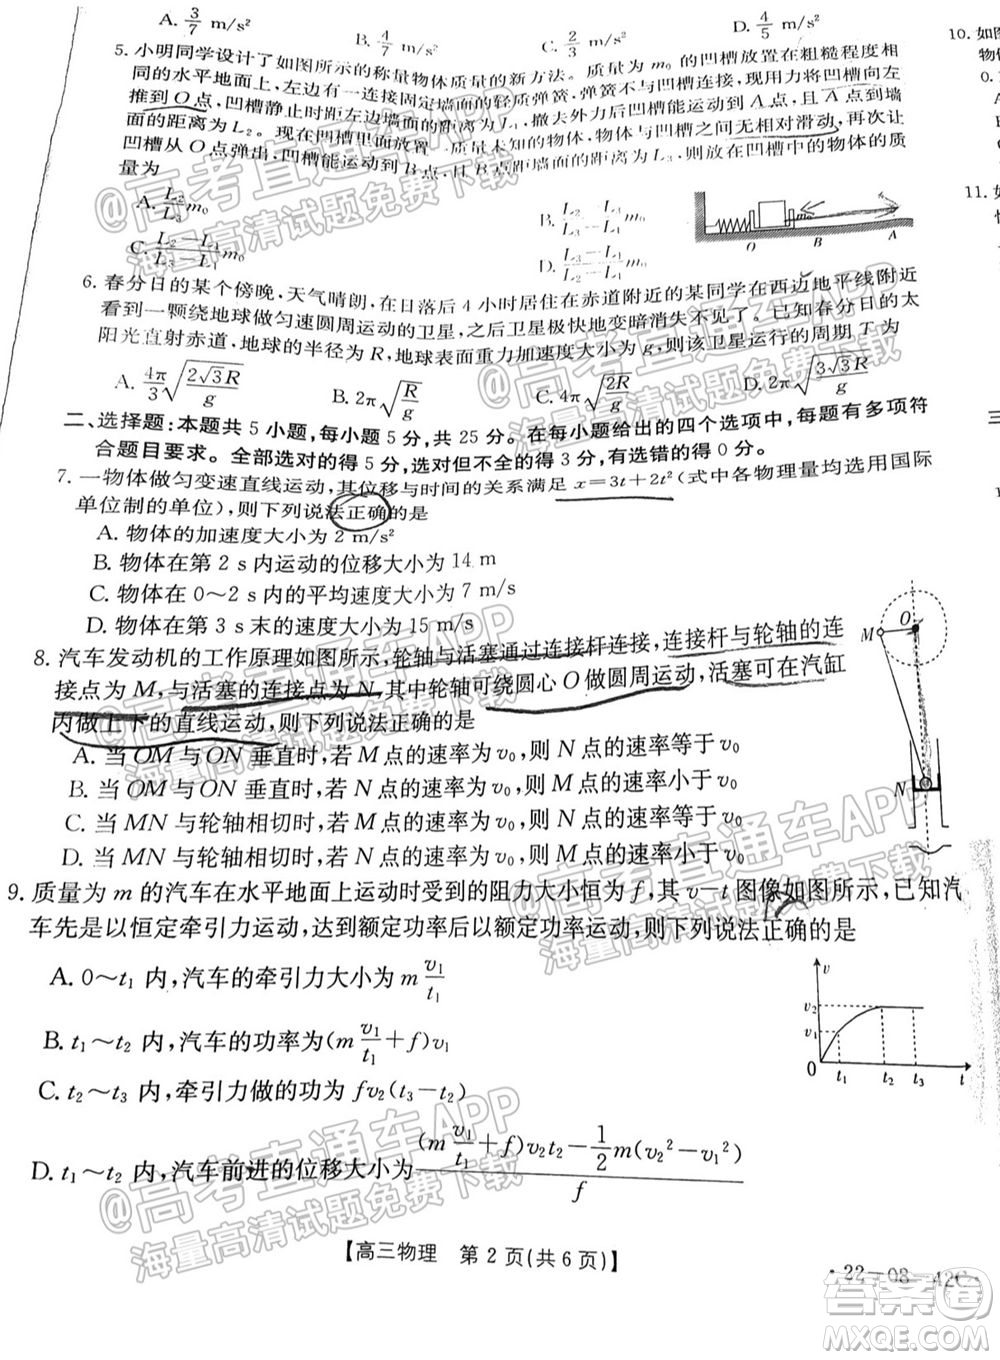 A. 3/7 m/s² B. 4/7 m/s² C. 2/3 m/s² D. 4/5 m/s²
5. 小明同学设计了如图所示的称量物体质量的新方法。质量为m₀的凹槽放置在粗糙程度相
同的水平地面上,左边有一连接固定墙面的轻质弹簧,弹簧不与凹槽连接,现将凹槽向左
推到O点,凹槽静止时距左边墙面的距离为L₁,撤去外力后凹槽能运动到A点,A点到墙
面的距离为L₂。现在凹槽里面放置一质量未知的物体,物体与凹槽之间无相对滑动,再次让
凹槽从O点弹出,凹槽能运动到B点,且B点距墙面的距离为L₃,则放在凹槽中的物体的质
量为
A. L₂/L₃ m₀
B. (L₂－L₃)/(L₃－L₁) m₀
C. (L₂－L₁)/(L₃－L₁) m₀
D. (L₃－L₁)/(L₂－L₁) m₀
O B A
6. 春分日的某个傍晚,天气晴朗,在日落后4小时居住在赤道附近的某同学在西边地平线附近
看到一颗绕地球做匀速圆周运动的卫星,之后卫星极快地变暗消失不见了,已知春分日的太
阳光直射赤道,地球的半径为R,地球表面重力加速度大小为g,则该卫星运行的周期T为
A. 4π/3 √(2√3R/g) B. 2π√(R/g) C. 4π√(2R/g) D. 2π√(√3R/g)
二、选择题:本题共5小题,每小题5分,共25分。在每小题给出的四个选项中,有多项符
合题目要求。全部选对的得5分,选对但不全的得3分,有选错的得0分。
7. 一物体做匀变速直线运动,其位移与时间的关系满足x=3t+2t²(式中各物理量均选用国际
单位制的单位),则下列说法正确的是
A. 物体的加速度大小为2 m/s²
B. 物体在第2 s内运动的位移大小为14 m
C. 物体在0～2 s内的平均速度大小为7 m/s
D. 物体在第3 s末的速度大小为15 m/s
8. 汽车发动机的工作原理如图所示,轮轴与活塞通过连接杆连接,连接杆与轮轴的连
接点为M,与活塞的连接点为N,其中轮轴可绕圆心O做圆周运动,活塞可在汽缸
内做上下的直线运动,则下列说法正确的是
A. 当OM与ON垂直时,若M点的速率为v₀,则N点的速率等于v₀
B. 当OM与ON垂直时,若M点的速率为v₀,则N点的速率小于v₀
C. 当MN与轮轴相切时,若M点的速率为v₀,则N点的速率大于v₀
D. 当MN与轮轴相切时,若M点的速率为v₀,则N点的速率小于v₀
M O
N
9. 质量为m的汽车在水平地面上运动时受到的阻力大小恒为f,其v－t图像如图所示,已知汽
车先是以恒定牵引力运动,达到额定功率后以额定功率运动,则下列说法正确的是
A. 0～t₁内,汽车的牵引力大小为m v₁/t₁
B. t₁～t₂内,汽车的功率为(m v₁/t₁+f)v₁
C. t₂～t₃内,牵引力做的功为fv₂(t₃－t₂)
D. t₁～t₂内,汽车前进的位移大小为 [(m v₁/t₁+f)v₂t₂－1/2 m(v₂²－v₁²)]/f
v v₂ v₁ 0 t₁ t₂ t₃ t
【高三物理 第2页(共6页)】
·22－03－42C·
10. 如图
物体
0.
A
C
11. 如
三
@高考直通车APP
海量高清试题免费下载
答案圈
MXQE.COM